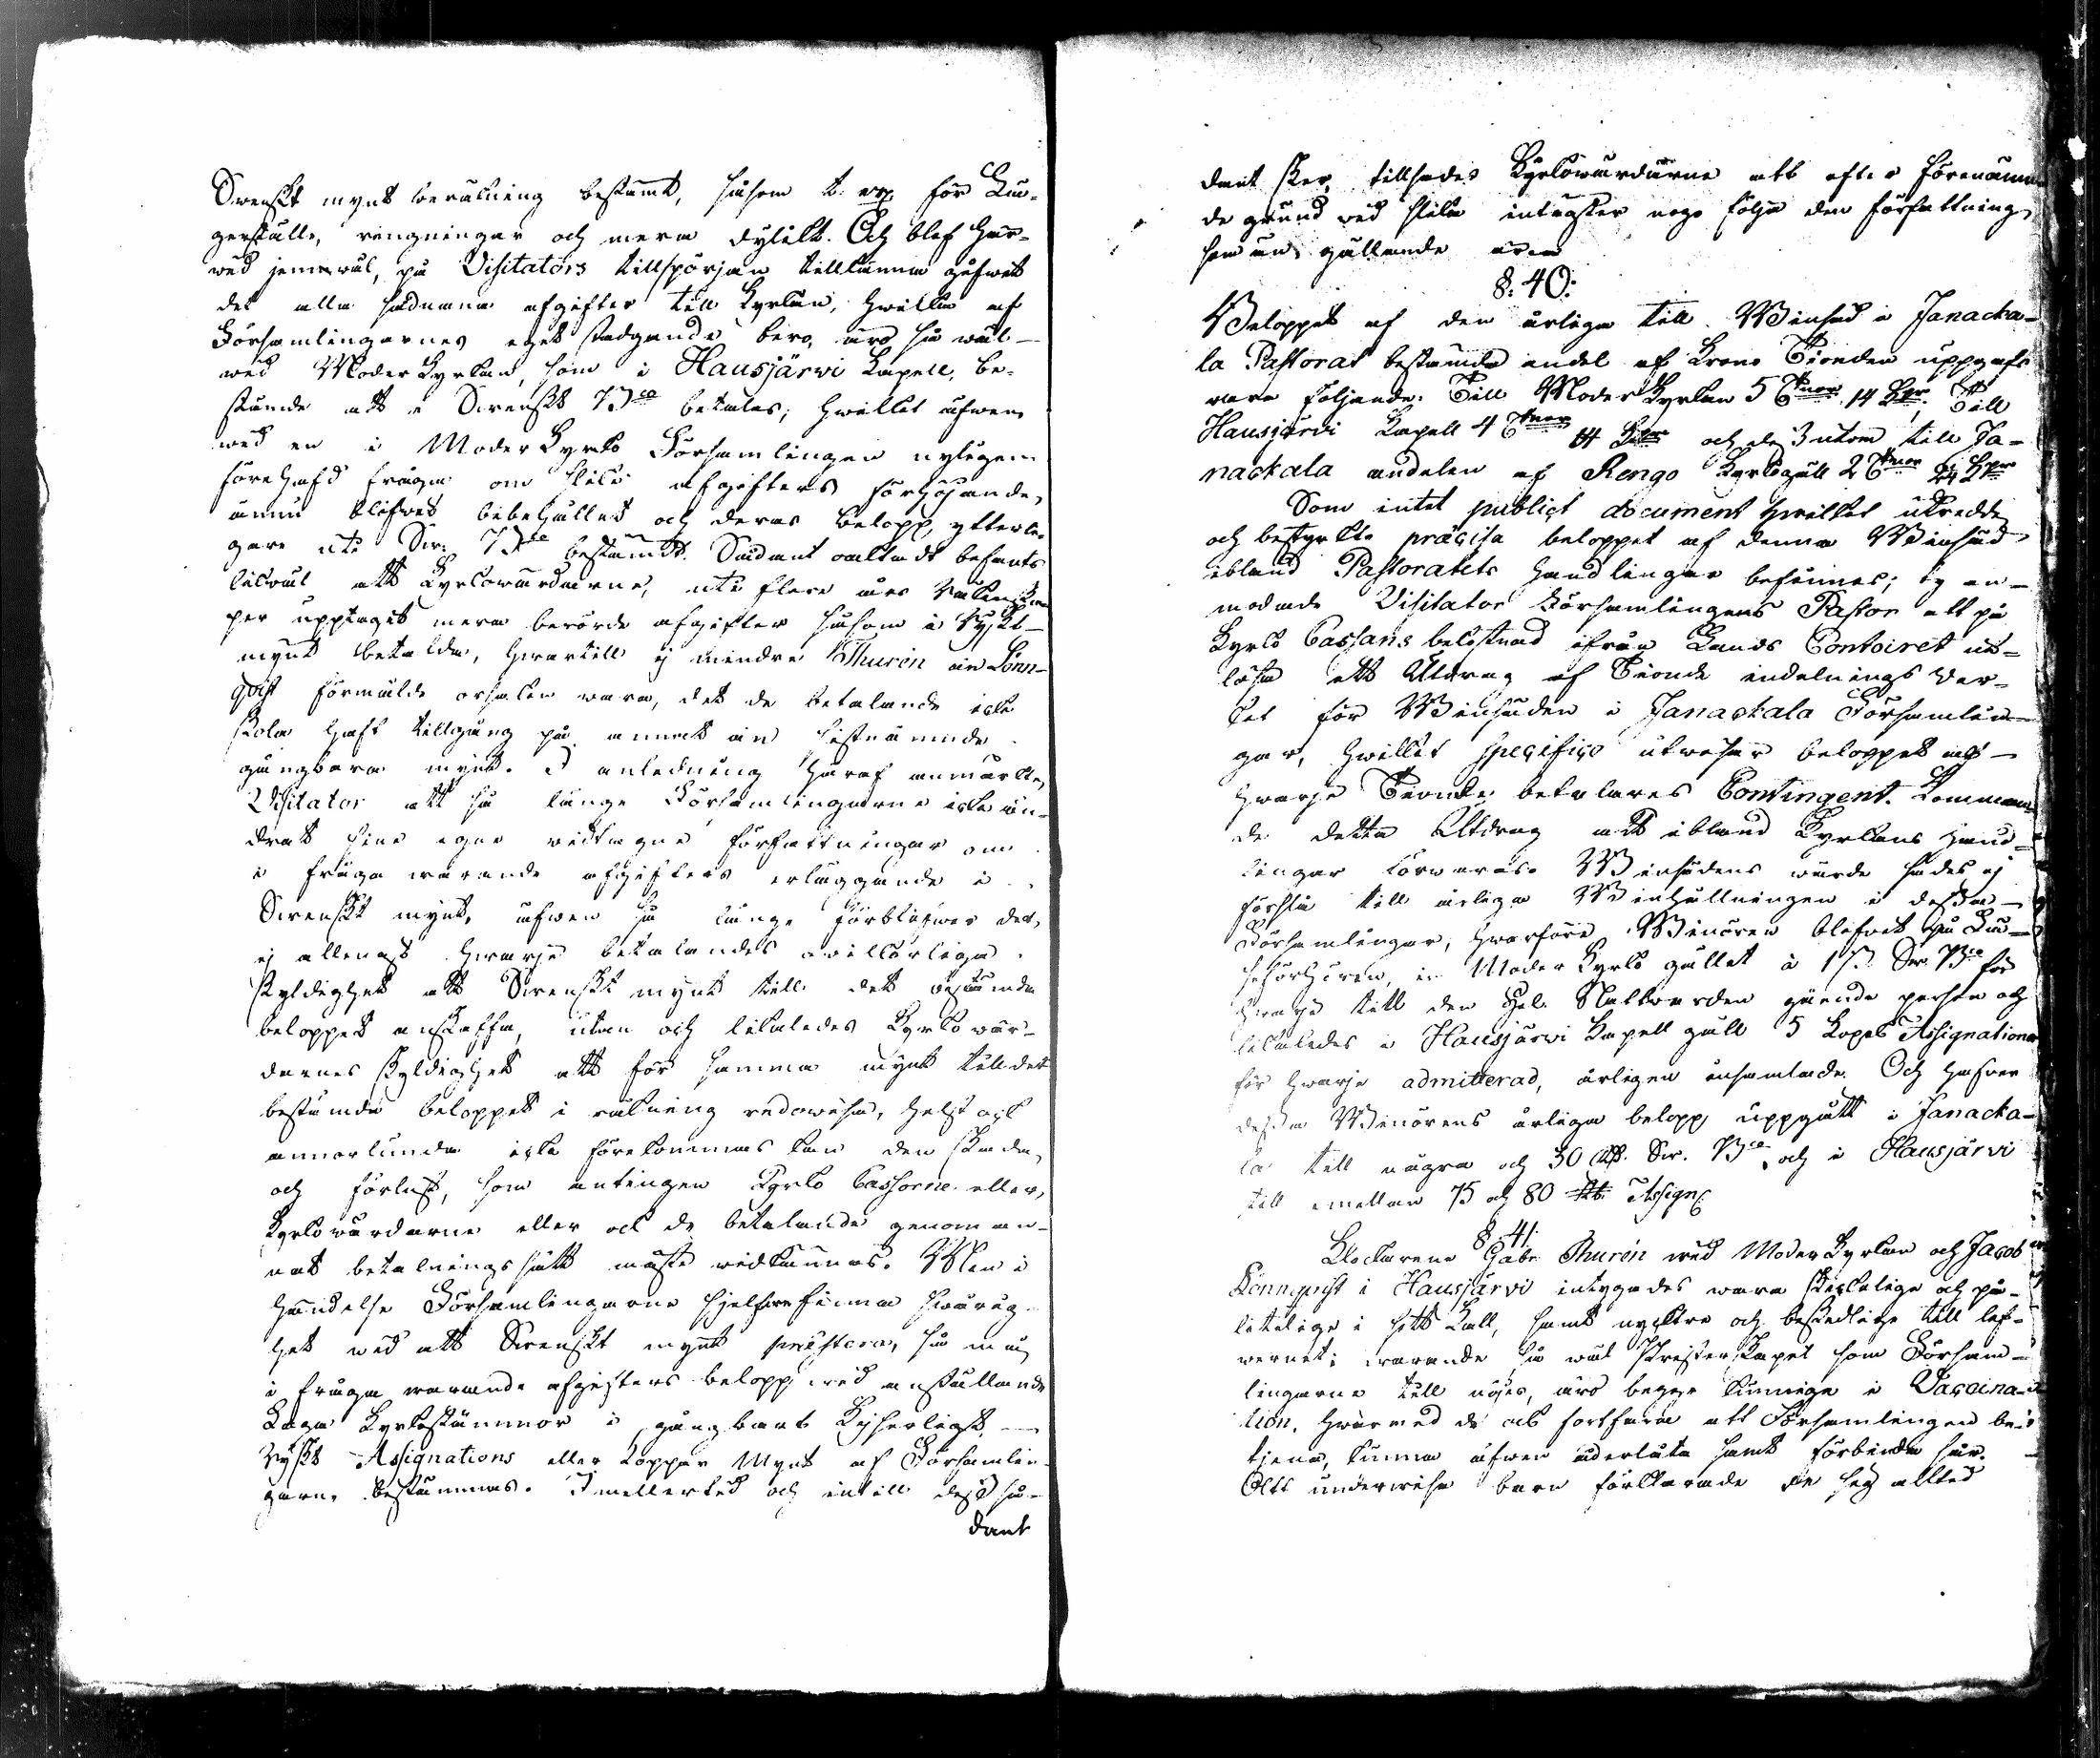 Svenskt mynt beräkning bestämt, såsom t. ex. för Lä-
gerställe, ringningar och mera dylikt. Och blef här-
wid jemwäl, på Visitators tillspörjan tillkänna gifwit
det alla sådanna afgifter till Kyrkan, hwilka af
Församlingarnes eget stadgande bero, äro så wäl
wid Moder Kyrkan, som i Hausjärwi Kapell, be-
stämde att i Svenskt Bco betalas; hwilket äfwen
wid en i Moder Kyrko Församlingen nyligen
förehafd fråga om slike afgifters förhöjande,
ännu blifwit bibehållit och deras belopp ytterli-
gare uti Sv: Bco bestämdt. Sådant oaktadt befants
likwäl att Kyrkowärdarne, uti flere års Räkenska-
per upptagit mera berörde afgifter såsom i Ryskt
mynt betalda, hwartill ej mindre Thurén än Lönn-
qvist förmälde orsaken wara, det de betalande icke
skola haft tillgång på annat än sistnämnde
gångbara mynt. I anledning häraf anmärkte
Visitator att så länge Församlingarne icke än-
drat sine egne widtagne författningar om
i fråga warande afgifters erläggande i
Svenskt mynt, äfwen så länge förblifwer det
ej allenast hwarje betalandes owillkorliga
skyldighet att Svenskt mynt till det bestämda
beloppet anskaffa, utan och likaledes Kyrkowär-
darnes skyldighet att för samma mynt till det
bestämda beloppet i räkning redowisa, helst ock
annorlunda icke förekommas kan den skada
och förlust, som antingen Kyrko Cassorne eller
Kyrkowärdarne eller ock de betalande genom an-
nat betalningssätt måste widkännas. Men i
händelse Församlingarne sjelfwe finna swårig-
het wid att Svenskt mynt prestera, så må
i fråga warande afgifters belopp wid anställande
Laga Kyrkostämmor i gångbart Kejserligt
Ryskt Assignations eller Koppar Mynt af Församlin-
garne bestämmas. Imellertid och intill dess så-
dant
dant sker, tillsades Kyrkowärdarne att efter förenämn
de grund wid slika intägter noga följa den författning
som nu gällande är.
§: 40:
Beloppet af den årliga till Winsäd i Janacka-
la Pastorat bestämda andel af Krono Tionden uppgafs
wara följande. Till Moder Kyrkan 5 Tnor 14 Kpr, Till
Hausjärwi Kapell 4 Tnor 14 Kpr och dessutom till Ja-
nackala andelen af Rengo Kyrkogäll 2 Tnor Kpr
Som intet publict document hwilket utredde
och bestyrkte precisa beloppet af denna Winsäd
ibland Pastoratets handlingar befinnes; ty an-
modade Visitator Församlingens Pastor att på
Kyrko Cassans bekostnad ifrån Lands Contoiret ut-
lösa ett Utdrag af Tionde indelnings Wer-
ket för Winsäden i Janackala Församlin-
gar, hwilket specifice utwisar beloppet af
hwarje Tionde betalares Contingent. Komman
de detta Utdrag att ibland Kyrkans hand-
lingar förwaras. Winsädens wärde sades ej
förslå till årliga Winhållningen i dessa
Församlingar, hwarföre Winören blifwit på Lä-
seförhören, in Moder Kyrko gället à 1 s. Sv. Bco för
hwarje till den Hel. Nattwarden gående person och
likaledes i Hausjärwi Kapell gäll 5 Kopek Assignationer
för hwarje admitterad, årligen insamlade. Och hafwer
dessa Winörens årliga belopp uppgått i Janacka-
la till några och 30 Rd. Sv. Bco, och i Hausjärvi
till emellan 75 och 80 Rub. Assign:
§ 41:
Klockarene Gabr. Thurén wid Moder Kyrkan och Jacob
Lönnqvist i Hausjärvi intygades wara skickelige och på-
litelige i sitt Kall, samt nyktre och beskedlige till lef-
wernet; warande så wäl Presterskapet som Försam-
lingarne till nöjes, äro begge kunnige i Vaccina-
tion, hwarmed de ock fortfara att Församlingen be-
tjena, kunna äfwen åderlåta samt förbinda sår.
Att underwisa barn förklarade de sig alltid